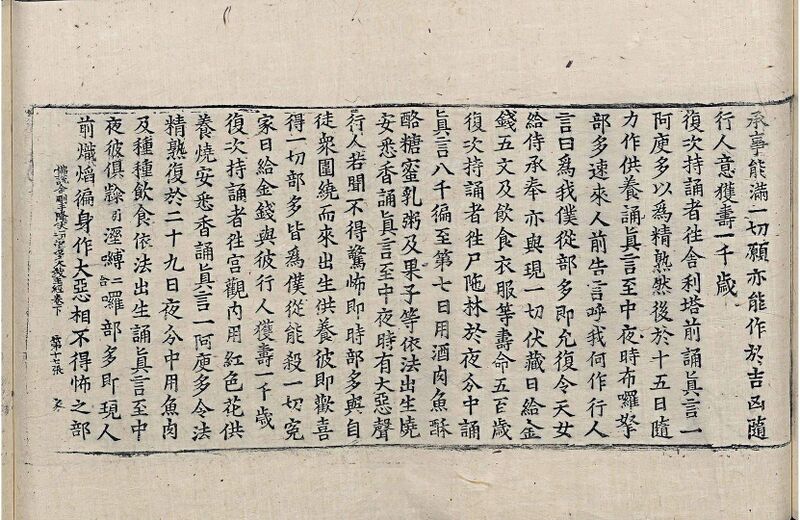 承事能滿一切願亦能作於吉凶隨
行人意獲壽一千歲
復次持誦者往舍利塔前誦眞言一
阿庾多以爲精熟然後於十五日隨
力作供養誦眞言至中夜時布囉拏
部多速來人前告言呼我何作行人
言曰爲我僕從部多即允復令天女
給侍承奉亦與現一切伏藏日給金
錢五文及飲食衣服等壽命五百歲
復次持誦者往尸陁林於夜分中誦
眞言八千徧至第七日用酒肉魚酥
酪糖蜜乳粥及果子等依法出生燒
安悉香誦眞言至中夜時有大惡聲
行人若聞不得驚怖即時部多與自
徒衆圍繞而來出生供養彼即歡喜
得一切部多皆爲僕從能殺一切冤
家日給金錢與彼行人獲壽一千歲
復次持誦者往宮觀內用紅色花供
養燒安悉香誦眞言一阿庾多令法
精熟復於二十九日夜分中用魚肉
及種種飲食依法出生誦眞言至中
夜彼俱黩引溼縛二合囉部多即現人
前熾熖徧身作大惡相不得怖之部
大教王經卷下 第十七張